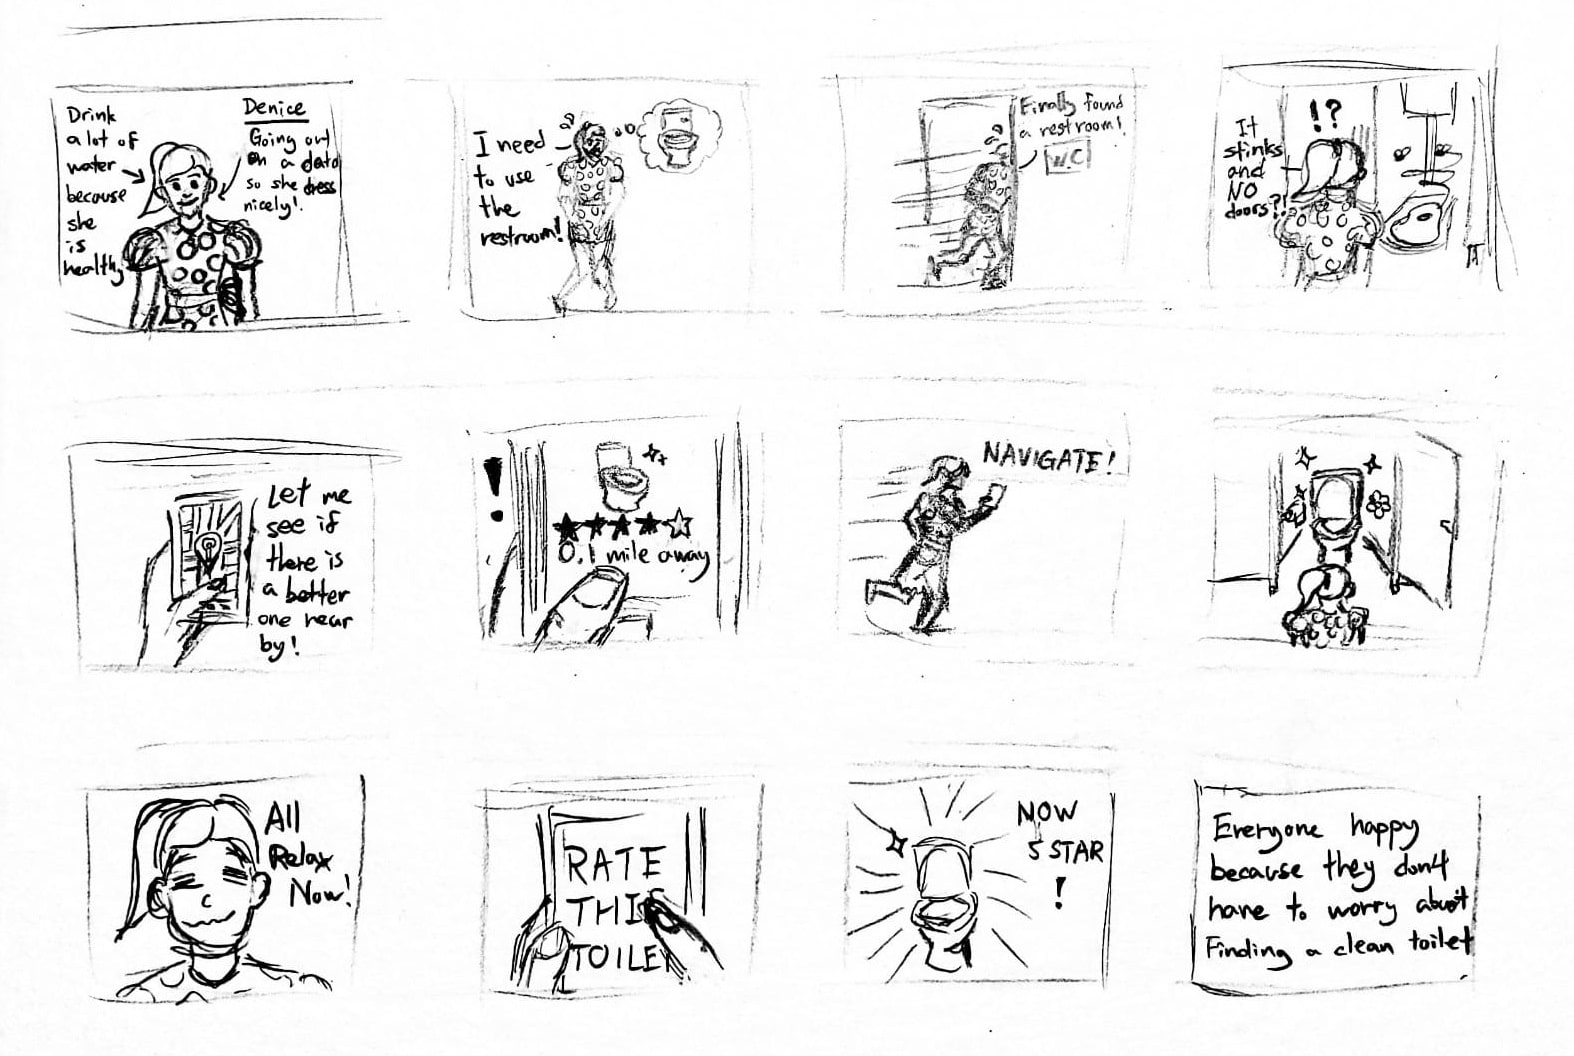 Drink
a lot of
water
because
she
is
healthy
Denice
Going out
on a date
so she dress
nicely!
I need
to use
the
restroom!
Finally found
a restroom!
W.C
!?
It
stinks
and
NO
doors?!
Let me
see if
there is
a better
one near
by!
!
0.1 mile away
NAVIGATE!
All
Relax
Now!
RATE
THI
TOILET
NOW
5 STAR
!
Everyone happy
because they don't
have to worry about
Finding a clean toilet